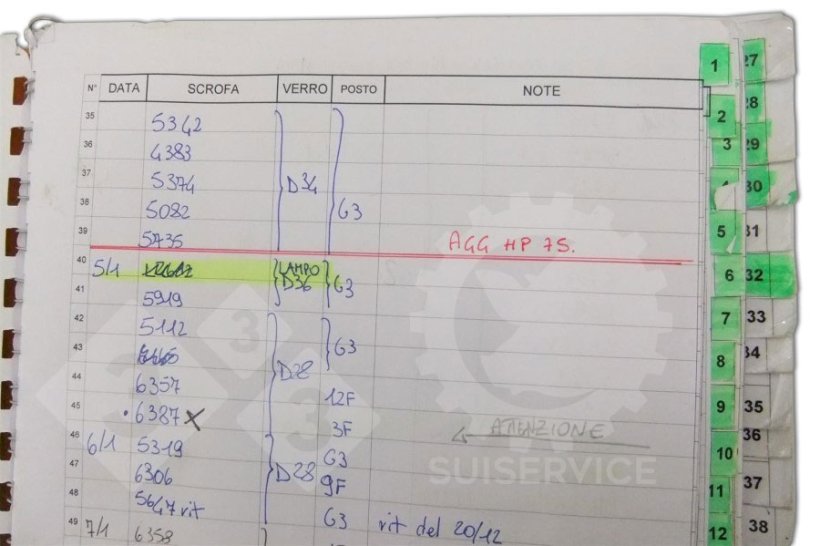 N° DATA SCROFA VERRO POSTO NOTE
35 5342
36 4383
37 5374 D34
38 5082 G3
39 5735
AGG HP 75.
40 5/1 LAMPO
41 5919 D36 G3
42 5112
43 G3
44 6357 D28 12F
45 6387 X 3F
ATTENZIONE
46 6/1 5319 G3
47 6306 D28 9F
48 5647 rit G3 rit del 20/12
49 7/1 6358
1 27
2 28
3 29
30
5 31
6 32
7 33
8 34
9 35
36
10
11 37
12 38
3 3 3
SUISERVICE